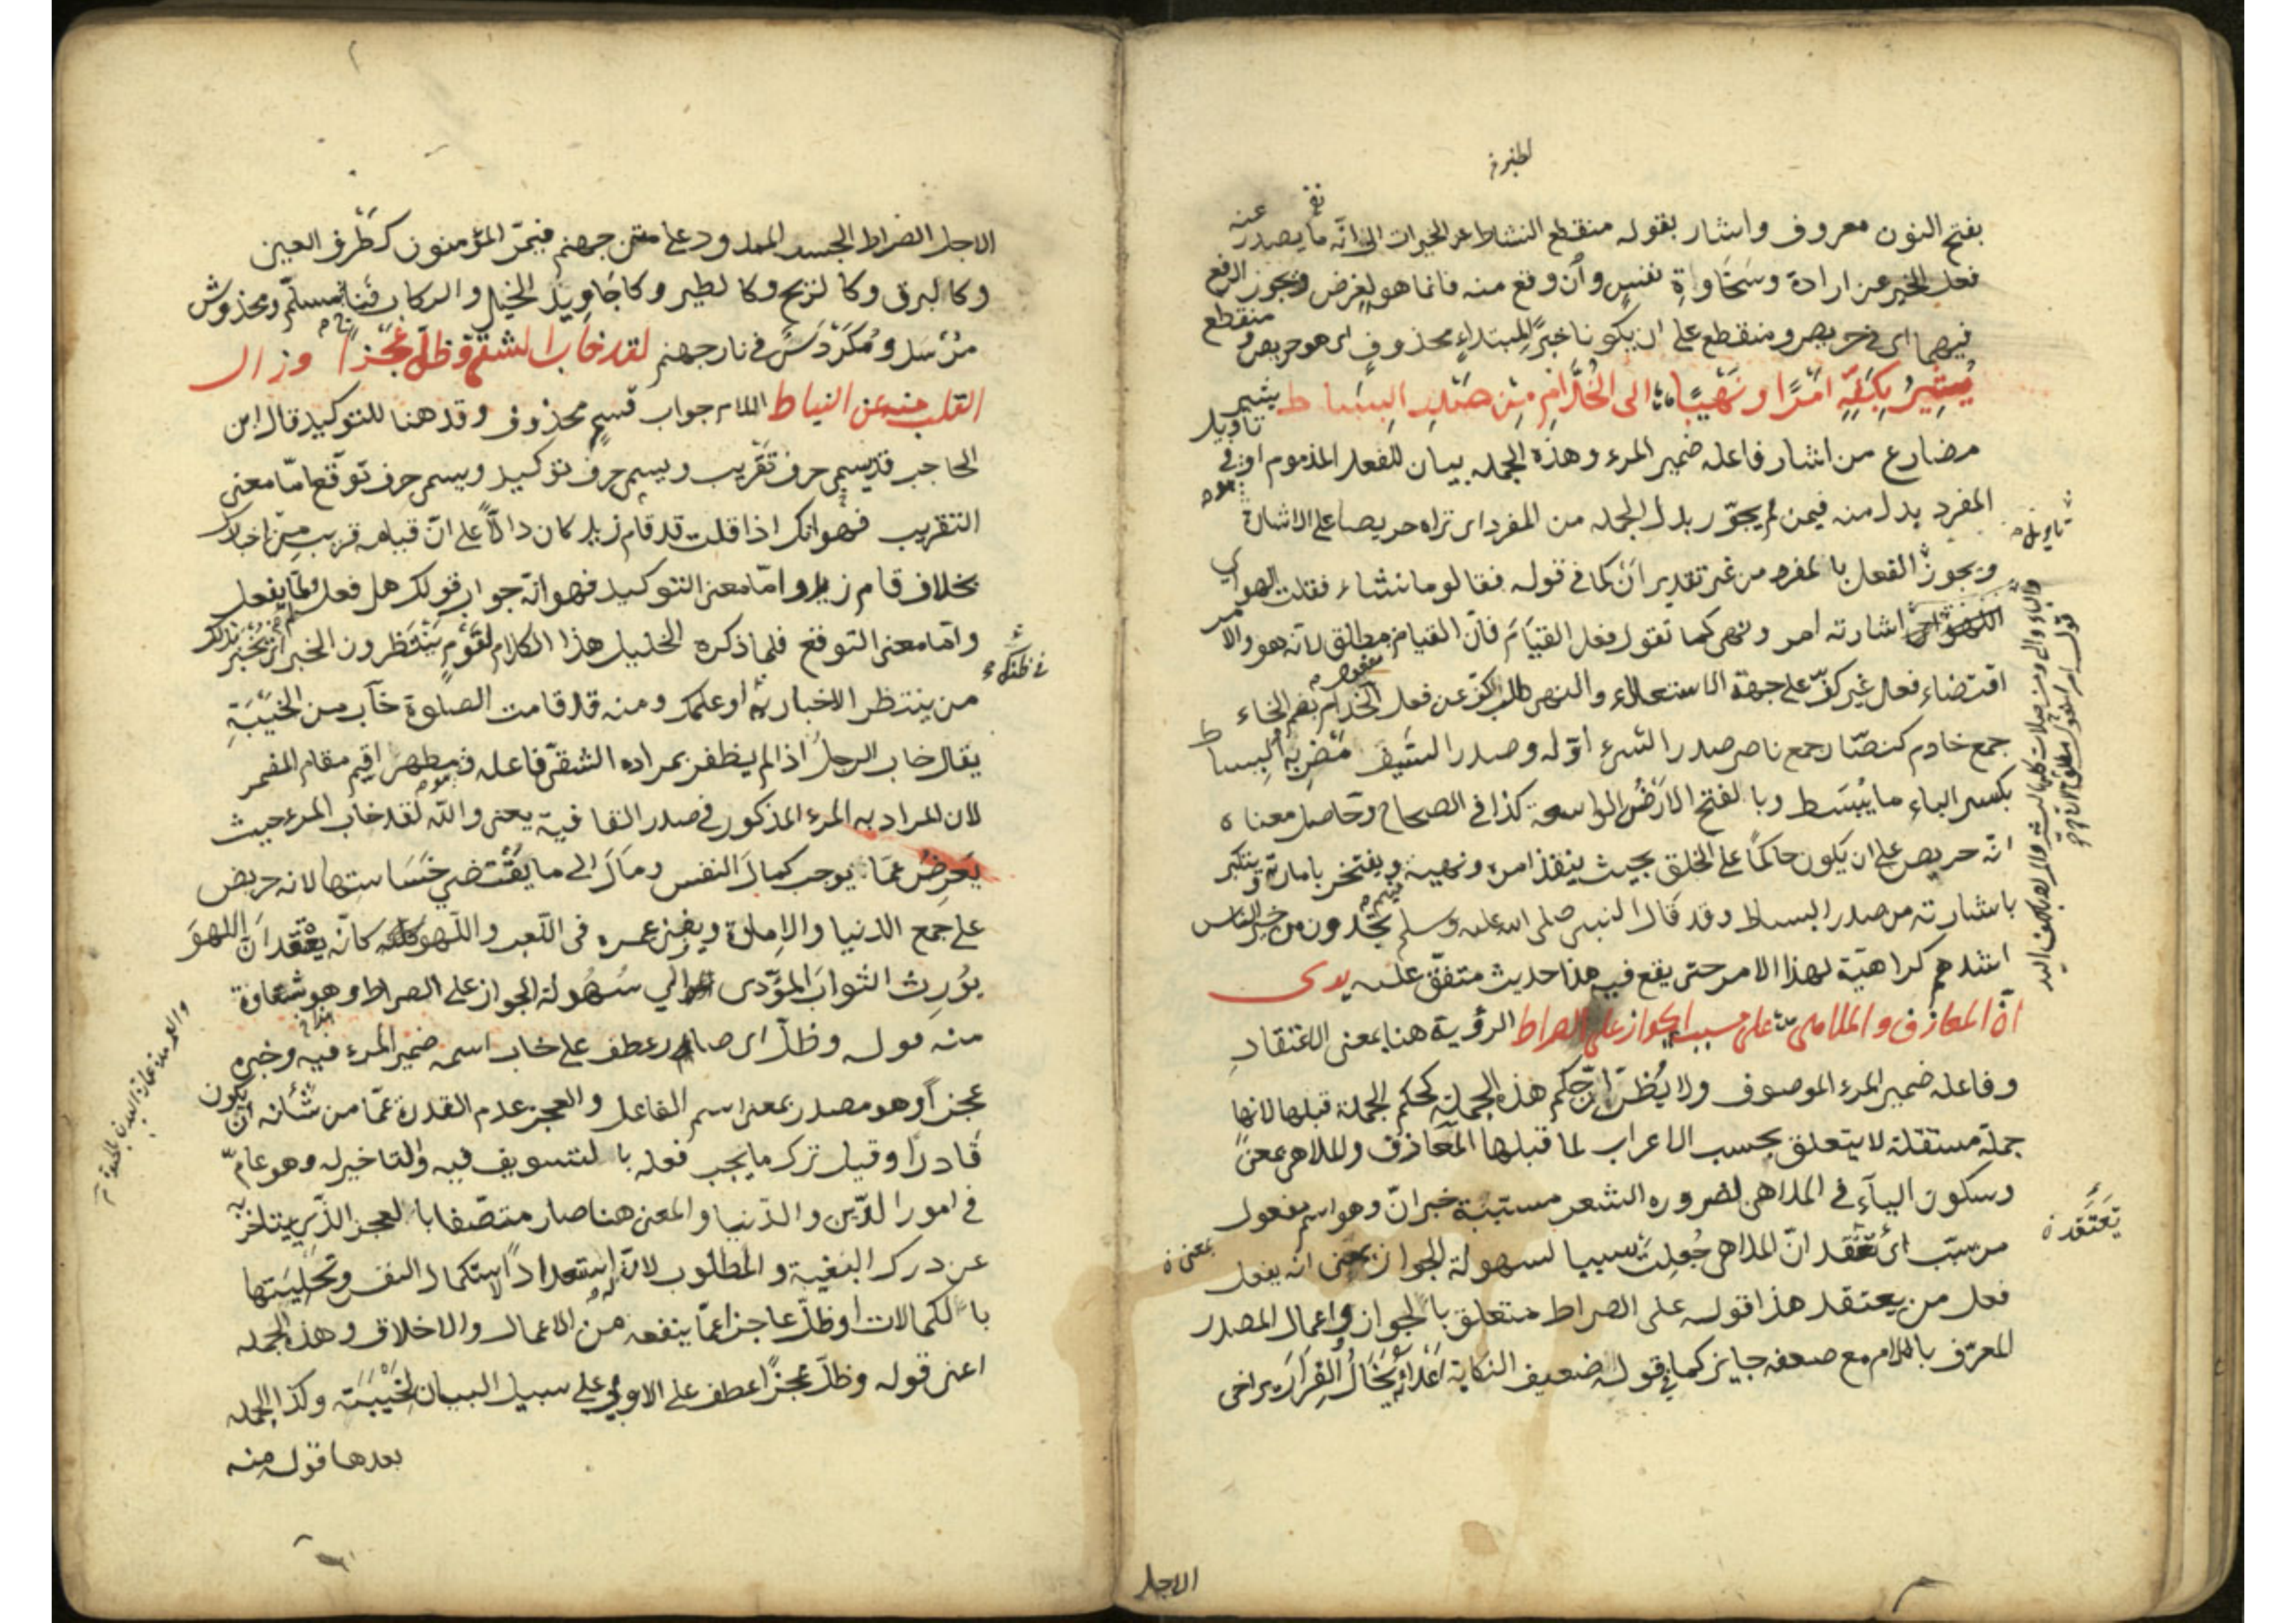 لطيفة
بفتح النون معروف واشار بقوله منقطع النشاط عن الخيرات الى انه ما يصدر عنه
فعل الخير عن ارادة وسخاوة نفس وان وقع منه فانما هو لغرض ويجوز الرفع
فيهما اى فى حريص ومنقطع على ان يكونا خبرا لمبتداء محذوف اى هو حريص ومنقطع
يشير بكفه امرا ونهيا الى الخدام من صدر البساط يشير
مضارع من اشار فاعله ضمير المرء وهذه الجمله بيان للفعل المذموم او فى تاويل
المفرد بدل منه فيمن لم يجوز بدل الجمله من المفرد اى تراه حريصا على الاشارة
ويجوز الفعل بالمفرد من غير تقدير ان كما فى قوله فقالوما نشاء فقلت الهو اى
اشارته امر ونهى كما تقول فعل القيام فان القيام مطلق لانه هو والامر
اقتضاء فعل غير كف على جهة الاستعلاء والنهى طلب كف عن فعل الخدام بضم الخاء
جمع خادم كنصار جمع ناصر صدر الشىء اوله وصدر السيف مضربه البساط
بكسر الباء ما يبسط وبالفتح الارض الواسعة كذا فى الصحاح وحاصل معناه
انه حريص على ان يكون حاكما على الخلق بحيث ينفذ امره ونهيه ويفتخر بامارته ويتكبر
باشارته من صدر البساط وقد قال النبى صلى الله عليه وسلم تجدون من خير الناس
اشدهم كراهية لهذا الامر حتى يقع فيه هذا حديث متفق عليه يرى
ان المعازف والملاهى مسببة الجواز على الصراط الرؤية هنا بمعنى الاعتقاد
وفاعله ضمير المرء الموصوف ولا يظن ان حكم هذه الجملة كحكم الجملة قبلها لانها
جملة مستقلة لا يتعلق بحسب الاعراب لما قبلها المعازف والملاهى بمعنى
وسكون الياء فى الملاهى لضروره الشعر مسببة خبر ان وهو اسم مفعول
من سبب اى تعتقد ان الملاهى جعلت سببا لسهولة الجواز بمعنى انه يفعل
فعل من يعتقد هذا قوله على الصراط متعلق بالجواز واعمال المصدر
المعرف باللام مع ضعفه جايز كما فى قوله ضعيف النكاية اعداءه يخال الفرار يراخى
تعتقده
الاجل
الاجل الصراط الجسر الممدود على متن جهنم فيمر المؤمنون كطرف العين
وكالبرق وكالريح وكالطير وكاجاويد الخيل والركاب فناج مسلم ومخدوش
مرسل ومكردس فى نار جهنم لقد خاب الشقى وظل عجزا وزال
القلب منه عن النياط اللام جواب قسم محذوف وقد هنا للتوكيد قال ابن
الحاجب قد يسمى حرف تقريب ويسمى حرف توكيد ويسمى حرف توقع اما معنى
التقريب فهو انك اذا قلت قد قام زيد كان دالا على ان قيامه قريب من اخبارك
بخلاف قام زيد واما معنى التوكيد فهو انه جواب قولك هل فعل ولما يفعل
واما معنى التوقع فلما ذكره الخليل هذا الكلام لقوم ينتظرون الخبر
من ينتظر الاخبار به او علمك ومنه قد قامت الصلوة خاب من الخيبة
يقال خاب الرجل اذا لم يظفر بمراده الشقى فاعله فمظهر اقيم مقام المضمر
لان المراد به المرء المذكور فى صدر القافية يعنى والله لقد خاب المرء حيث
يعرض عما يوجب كمال النفس ومال الى ما يقتضى خساستها لانه حريص
على جمع الدنيا والامارة ويفنى عمره فى اللعب واللهو كانه يعتقد ان اللهو
يورث الثواب المؤدى الى سهولة الجواز على الصراط وهو شقاوة
منه قوله وظل اى صار عطف على خاب اسمه ضمير المرء فيه وخبره
عجزا وهو مصدر بمعنى اسم الفاعل والعجز عدم القدرة عما من شانه ان يكون
قادرا وقيل ترك ما يجب فعله بالتسويف فيه والتاخير له وهو عام
فى امور الدين والدنيا والمعنى هنا صار متصفا بالعجز الذى يتاخر به
عن درك البغية والمطلوب لان استعدادا لاستكمال النفس وتحليتها
بالكمالات او ظل عاجزا عما ينفعه من الاعمال والاخلاق وهذه الجمله
اعنى قوله وظل عجزا عطف على الاولى على سبيل البيان لخيبته وكذا الجمله
بعدها قوله منه